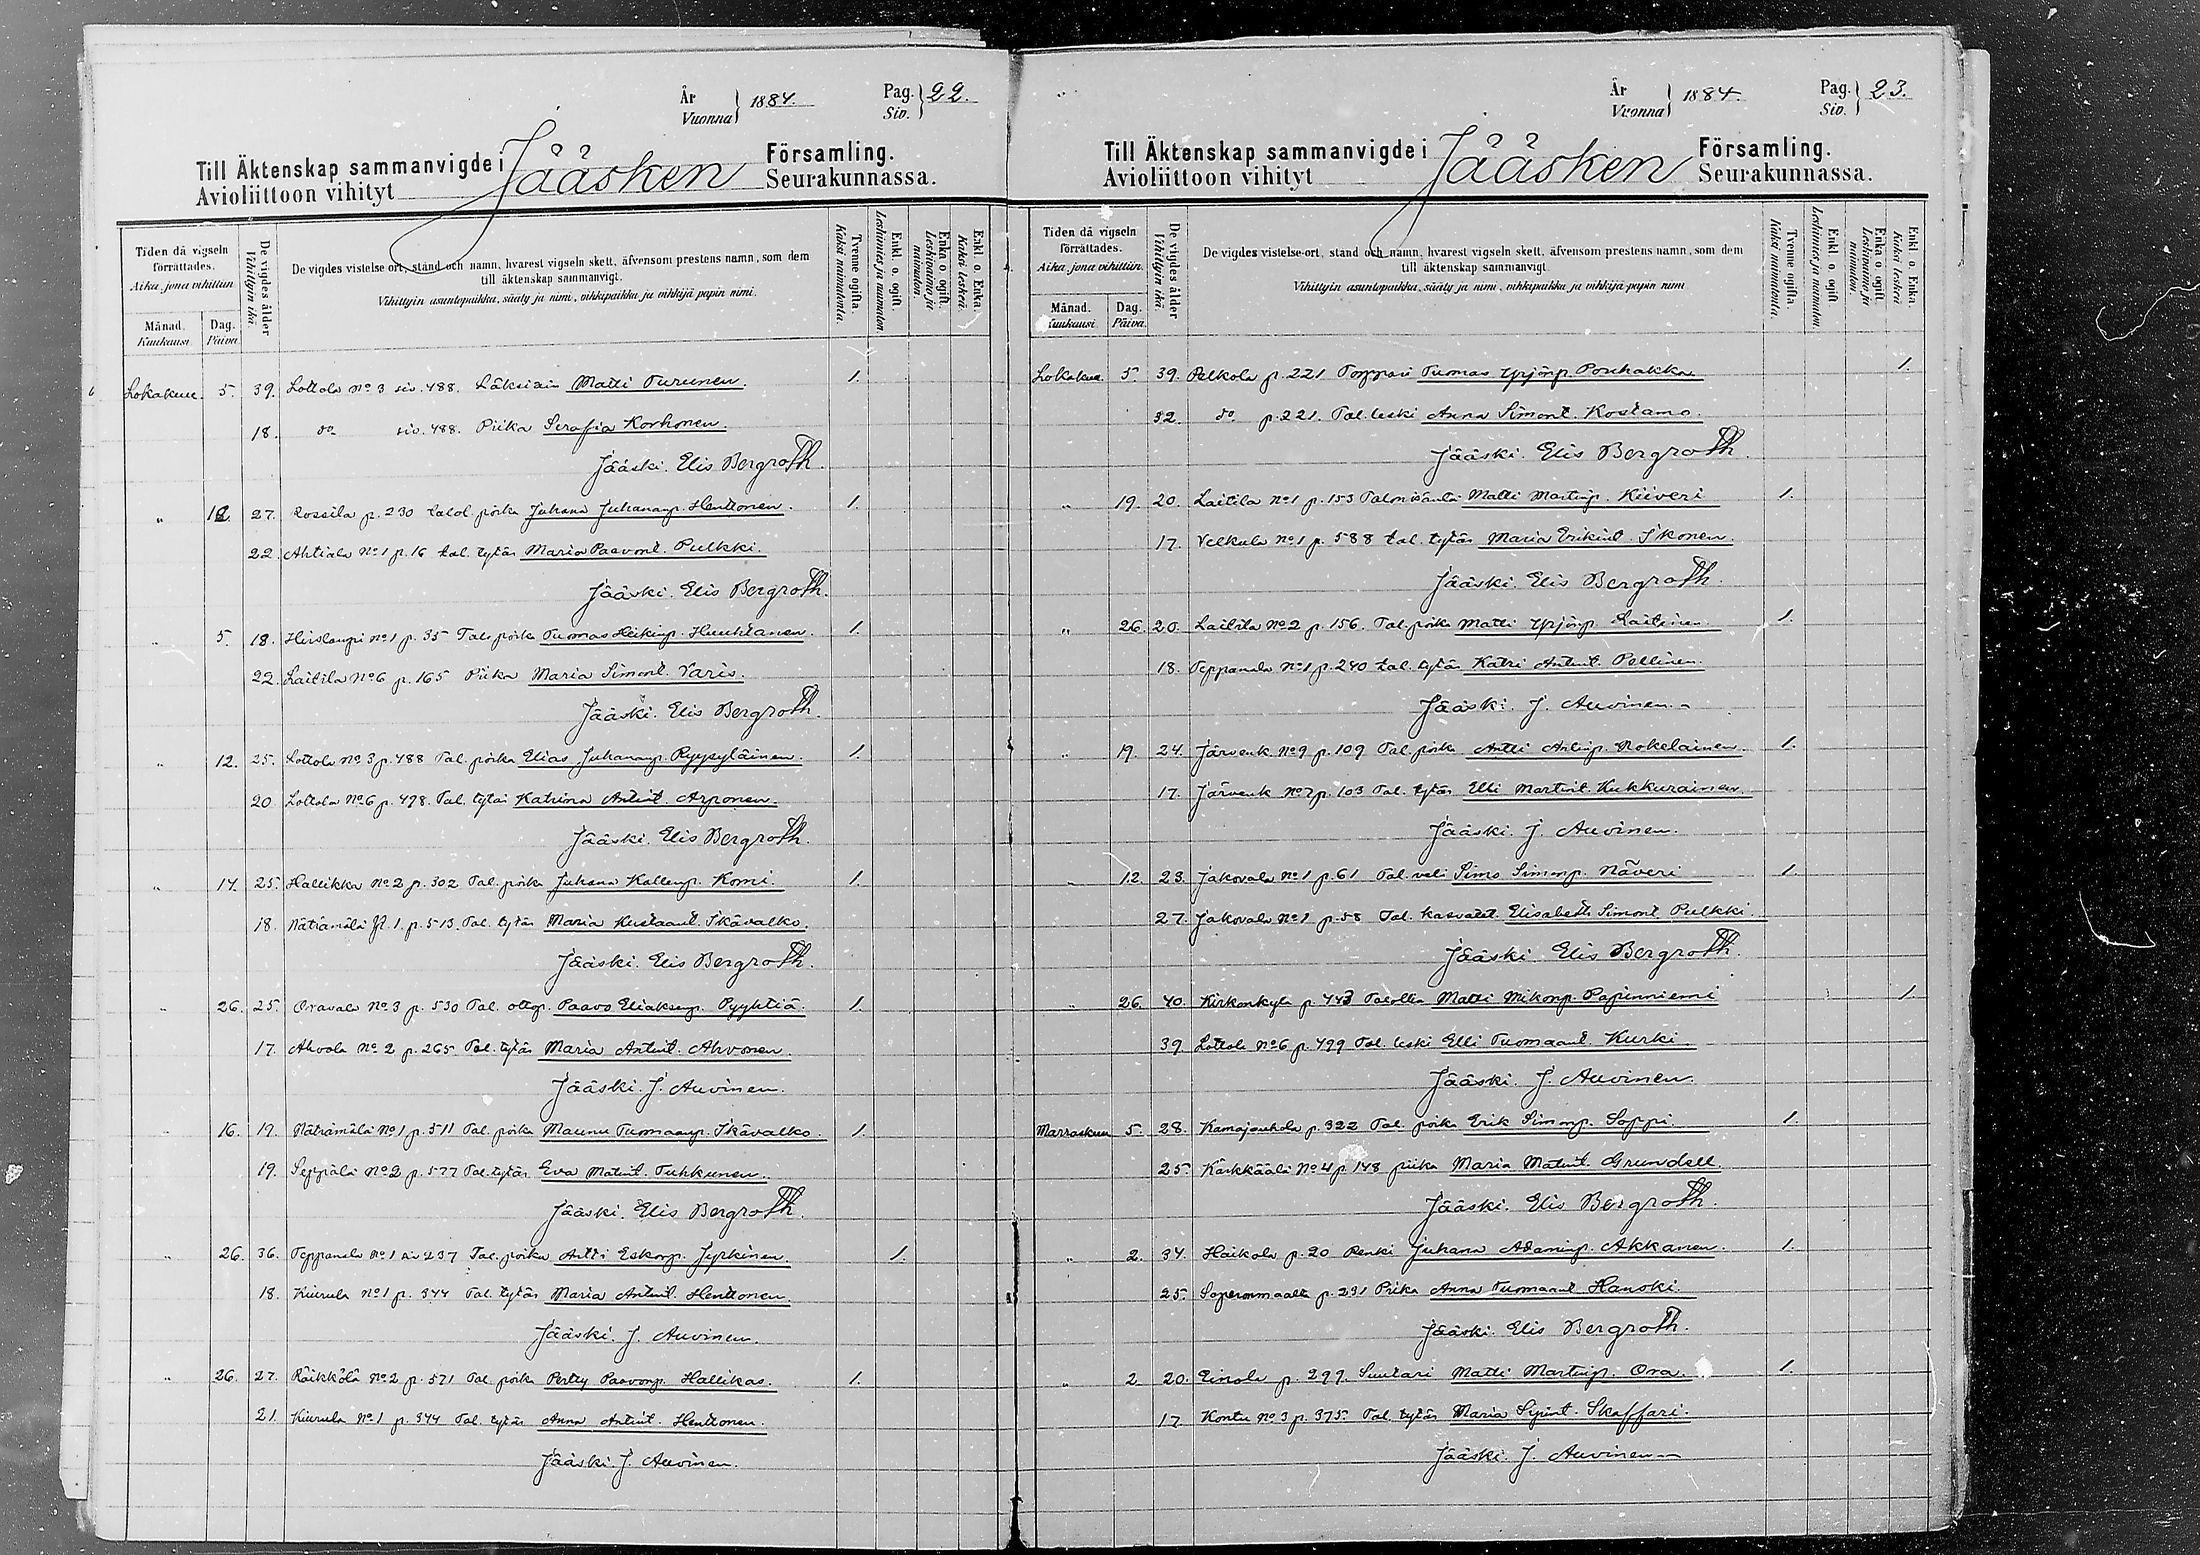 År
Vuonna } 1884. Pag.
Siv. } 22.
Till Äktenskap sammanvigde i Jääsken Församling.
Avioliittoon vihityt Seurakunnassa.
Tiden då vigseln förrättades.
Aika, jona vihittiin.
Månad.
Kuukausi.
Dag.
Päivä.
De vigdes ålder
Vihittyin ikä.
De vigdes vistelse ort, stånd och namn, hvarest vigseln skett, äfvensom prestens namn, som dem
till äktenskap sammanvigt.
Vihittyin asuntopaikka, sääty ja nimi, vihkipaikka ja vihkijä papin nimi.
Tvenne ogifta.
Kaksi naimatonta.
Enkl. o. ogift.
Leskimies ja naimaton.
Enka o. ogift.
Leskivaimo ja naimaton.
Enkl. o. Enka.
Kaksi leskeä.
Lokakuu. 5. 39. Lottola No 3 siv. 488. Matti Turunen. 1.
18. do siv. 488. Piika Serafia Korhonen.
Jääski. Elis Bergroth.
" 27. Rossila p. 230 talol. poika Juhana Juhananp. Henttonen. 1.
22. Ahtiala No 1 p. 16 tal. tytär Maria Paavont. Pulkki.
Jääski. Elis Bergroth.
" 5. 18. No 1 p. 35 Tal. poika Tuomas Heikinp. Huuhtanen. 1.
22. Laitila No 6 p. 165 Piika Maria Simont. Varis.
Jääski. Elis Bergroth.
" 12. 25. Lottola No 3 p. 488 Tal. poika Elias Juhananp. Ryypyläinen. 1.
20 Lottola No 6 p. 498. Tal. tytär Katrina Antint. Arponen.
Jääski. Elis Bergroth.
" 14. 25. Hallikka No 2 p. 302 Tal. poika Juhana Kallenp. Komi. 1.
18. Näträmälä No 1. p. 513. Tal. tytär Maria Kustaant. Skävalko.
Jääski. Elis Bergroth.
" 26. 25. Oravala No 3 p. 530 Tal. ottop. Paavo Eliaksenp. Pyyhtiä. 1.
17. Ahvola No 2 p. 265 Tal. tytär Maria Antint. Ahvonen.
Jääski. J. Auvinen.
" 16. 19. Näträmälä No 1 p. 511 Tal. poika Maunu Tuomaanp. Skävalko. 1.
19. Seppälä No 2 p. 577 Tal. tytär Eva Matint. Tuhkunen.
Jääski. Elis Bergroth.
" 26. 36. Teppanala No 1 siv 237 Tal. poika Antti Eskonp. Jyrkinen. 1.
18. Kiurula No 1 p. 344 Tal. tytär Maria Antint. Henttonen.
Jääski. J. Auvinen.
" 26. 27. Räikkölä No 2 p. 571 Tal. poika Perttu Paavonp. Hallikas. 1.
21. Kiurula No 1 p. 344 Tal. tytär Anna Antint. Henttonen.
Jääski. J. Auvinen.
År
Vuonna } 1884. Pag.
Siv. } 23.
Till Äktenskap sammanvigde i Jääsken Församling.
Avioliittoon vihityt Seurakunnassa.
Tiden då vigseln förrättades.
Aika, jona vihittiin.
Månad.
Kuukausi
Dag.
Päivä.
De vigdes ålder
Vihittyin ikä.
De vigdes vistelse-ort, stånd och namn, hvarest vigseln skett, äfvensom prestens namn, som dem
till äktenskap sammanvigt.
Vihittyin asuntopaikka, sääty ja nimi, vihkipaikka ja vihkijä-papin nimi
Tvenne ogifta.
Kaksi naimatonta.
Enkl. o. ogift
Leskimies ja naimaton.
Enka o. ogift.
Leskivaimo ja naimaton.
Enkl. o. Enka.
Kaksi leskeä.
Lokakuu 5. 39. Pelkola p. 221 Torppari Tuomas Yrjönp. Pouhakka 1.
32. do p. 221. Tal. leski Anna Simont. Kostamo.
Jääski. Elis Bergroth.
" 19. 20. Laitila No 1 p. 153 Talonisäntä Matti Martinp. Kiiveri 1.
17. Velkula No 1 p. 588 tal. tytär Maria Erikint. Ikonen.
Jääski. Elis Bergroth.
" 26. 20. Laitila No 2 p. 156. Tal. poika Matti Yrjönp. Laitinen. 1.
18. Teppanala No 1 p. 240 tal. tytär Katri Antint. Pellinen.
Jääski. J. Auvinen.
" 19. 24. Järvenk. No 9 p. 109 Tal. poika Antti Antinp. Nokelainen. 1.
17. Järvenk No 7 p. 103 Tal. tytär Elli Martint. Kukkurainen.
Jääski. J. Auvinen.
" 12. 23. Jakovala No 1 p. 61 Tal. veli Simo Simonp. Näveri 1.
27. Jakovala No 1 p. 58 Tal. kasvatet. Elisabeth Simont. Pulkki.
Jääski Elis Bergroth.
" 26. 40. Kirkonkylä p. 443 Matti Mikonp. Papinniemi 1.
39. Lottola No 6 p. 499 Tal. leski Elli Tuomaant. Kurki.
Jääski. J. Auvinen.
Marraskuu 5. 28. p. 322 Tal. poika Erik Simonp. Soppi. 1.
25. Kärkkäälä No 4 p. 148 piika Maria Matint. Grundell.
Jääski. Elis Bergroth.
" 2. 34. Haikola p. 20 Renki Juhana Adaminp. Akkanen. 1.
25. p. 231 Piika Anna Tuomaant. Hanski.
Jääski. Elis Bergroth.
" 2. 20. p. 299. Suutari Matti Martinp. Ora. 1.
17. Kontu No 3 p. 375. Tal. tytär Maria Skaffari.
Jääski. J. Auvinen